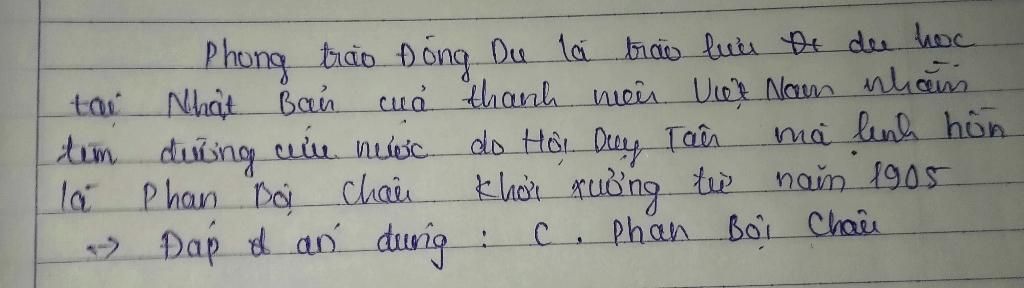 Phong trào Đông Du là trào lưu du học
tại Nhật Bản của thanh niên Việt Nam nhằm
tìm đường cứu nước do Hội Duy Tân mà linh hồn
là Phan Bội Châu khởi xướng từ năm 1905
=> Đáp án đúng : C. Phan Bội Châu